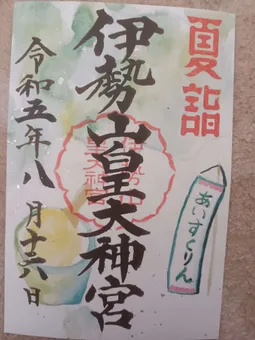 夏詣
伊勢山皇大神宮
令和五年八月十六日
あいすくりん